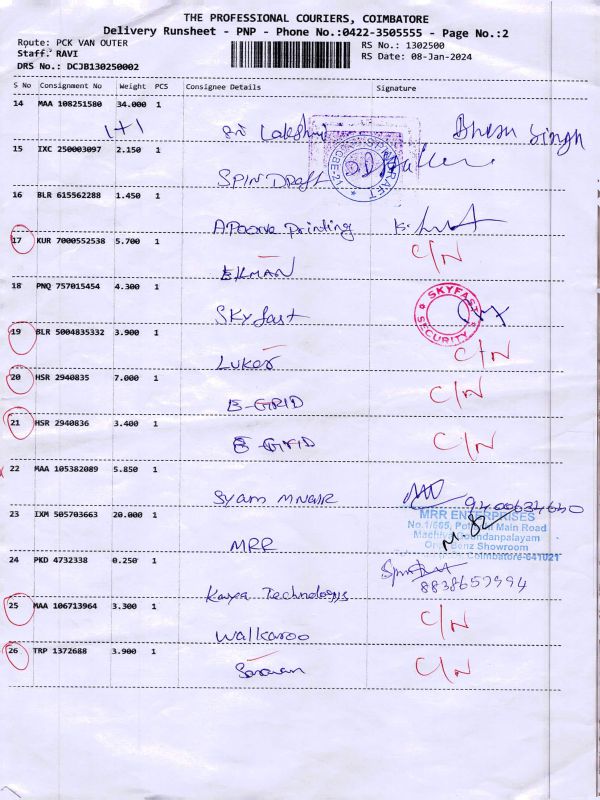 THE PROFESSIONAL COURIERS, COIMBATORE
Delivery Runsheet - PNP - Phone No.:0422-3505555 - Page No.:2
Route: PCK VAN OUTER RS No.: 1302500
Staff: RAVI RS Date: 08-Jan-2024
DRS No.: DCJB130250002
S No Consignment No Weight PCS Consignee Details Signature
14 MAA 108251580 34.000 1
1+1 Sri Lakshmi Bhesu Singh
15 IXC 250003097 2.150 1
SPIN DRAFT
16 BLR 615562288 1.450 1
APoorva Printing
17 KUR 7000552538 5.700 1 C/N
EKMAN
18 PNQ 757015454 4.300 1
SKYfast SKYFAST SECURITY
19 BLR 5004835332 3.900 1 C/N
LUKER
20 HSR 2940835 7.000 1 C/N
E-GRID
21 HSR 2940836 3.400 1 C/N
E-GRID
22 MAA 105382089 5.850 1
Syam MNAIR 9400634640
23 IXM 505703663 20.000 1 MRR ENTERPRISES
No.1/565, Main Road
MRR Showroom
Coimbatore-641021
24 PKD 4732338 0.250 1
Kaya Technologys 8838653994
25 MAA 106713964 3.300 1 C/N
Walkaroo
26 TRP 1372688 3.900 1 C/N
Saravan